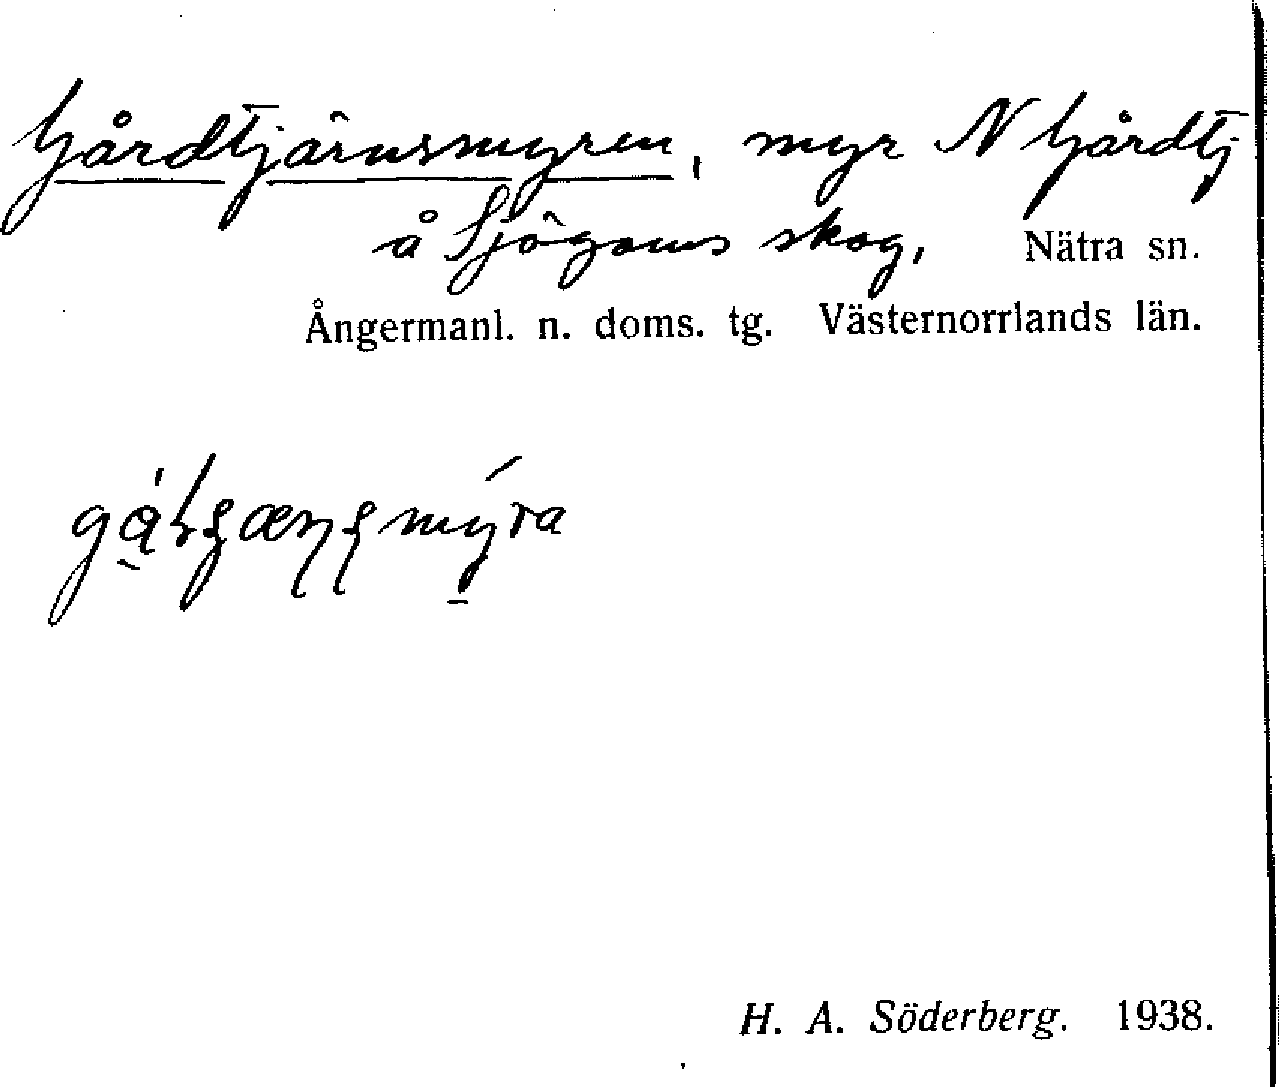 Gårdtjärnsmyren, myr N Gårdtj
å Sjögoms skog, Nätra sn.
Ångermanl. n. doms. tg. Västernorrlands län.
H. A. Söderberg. 1938.